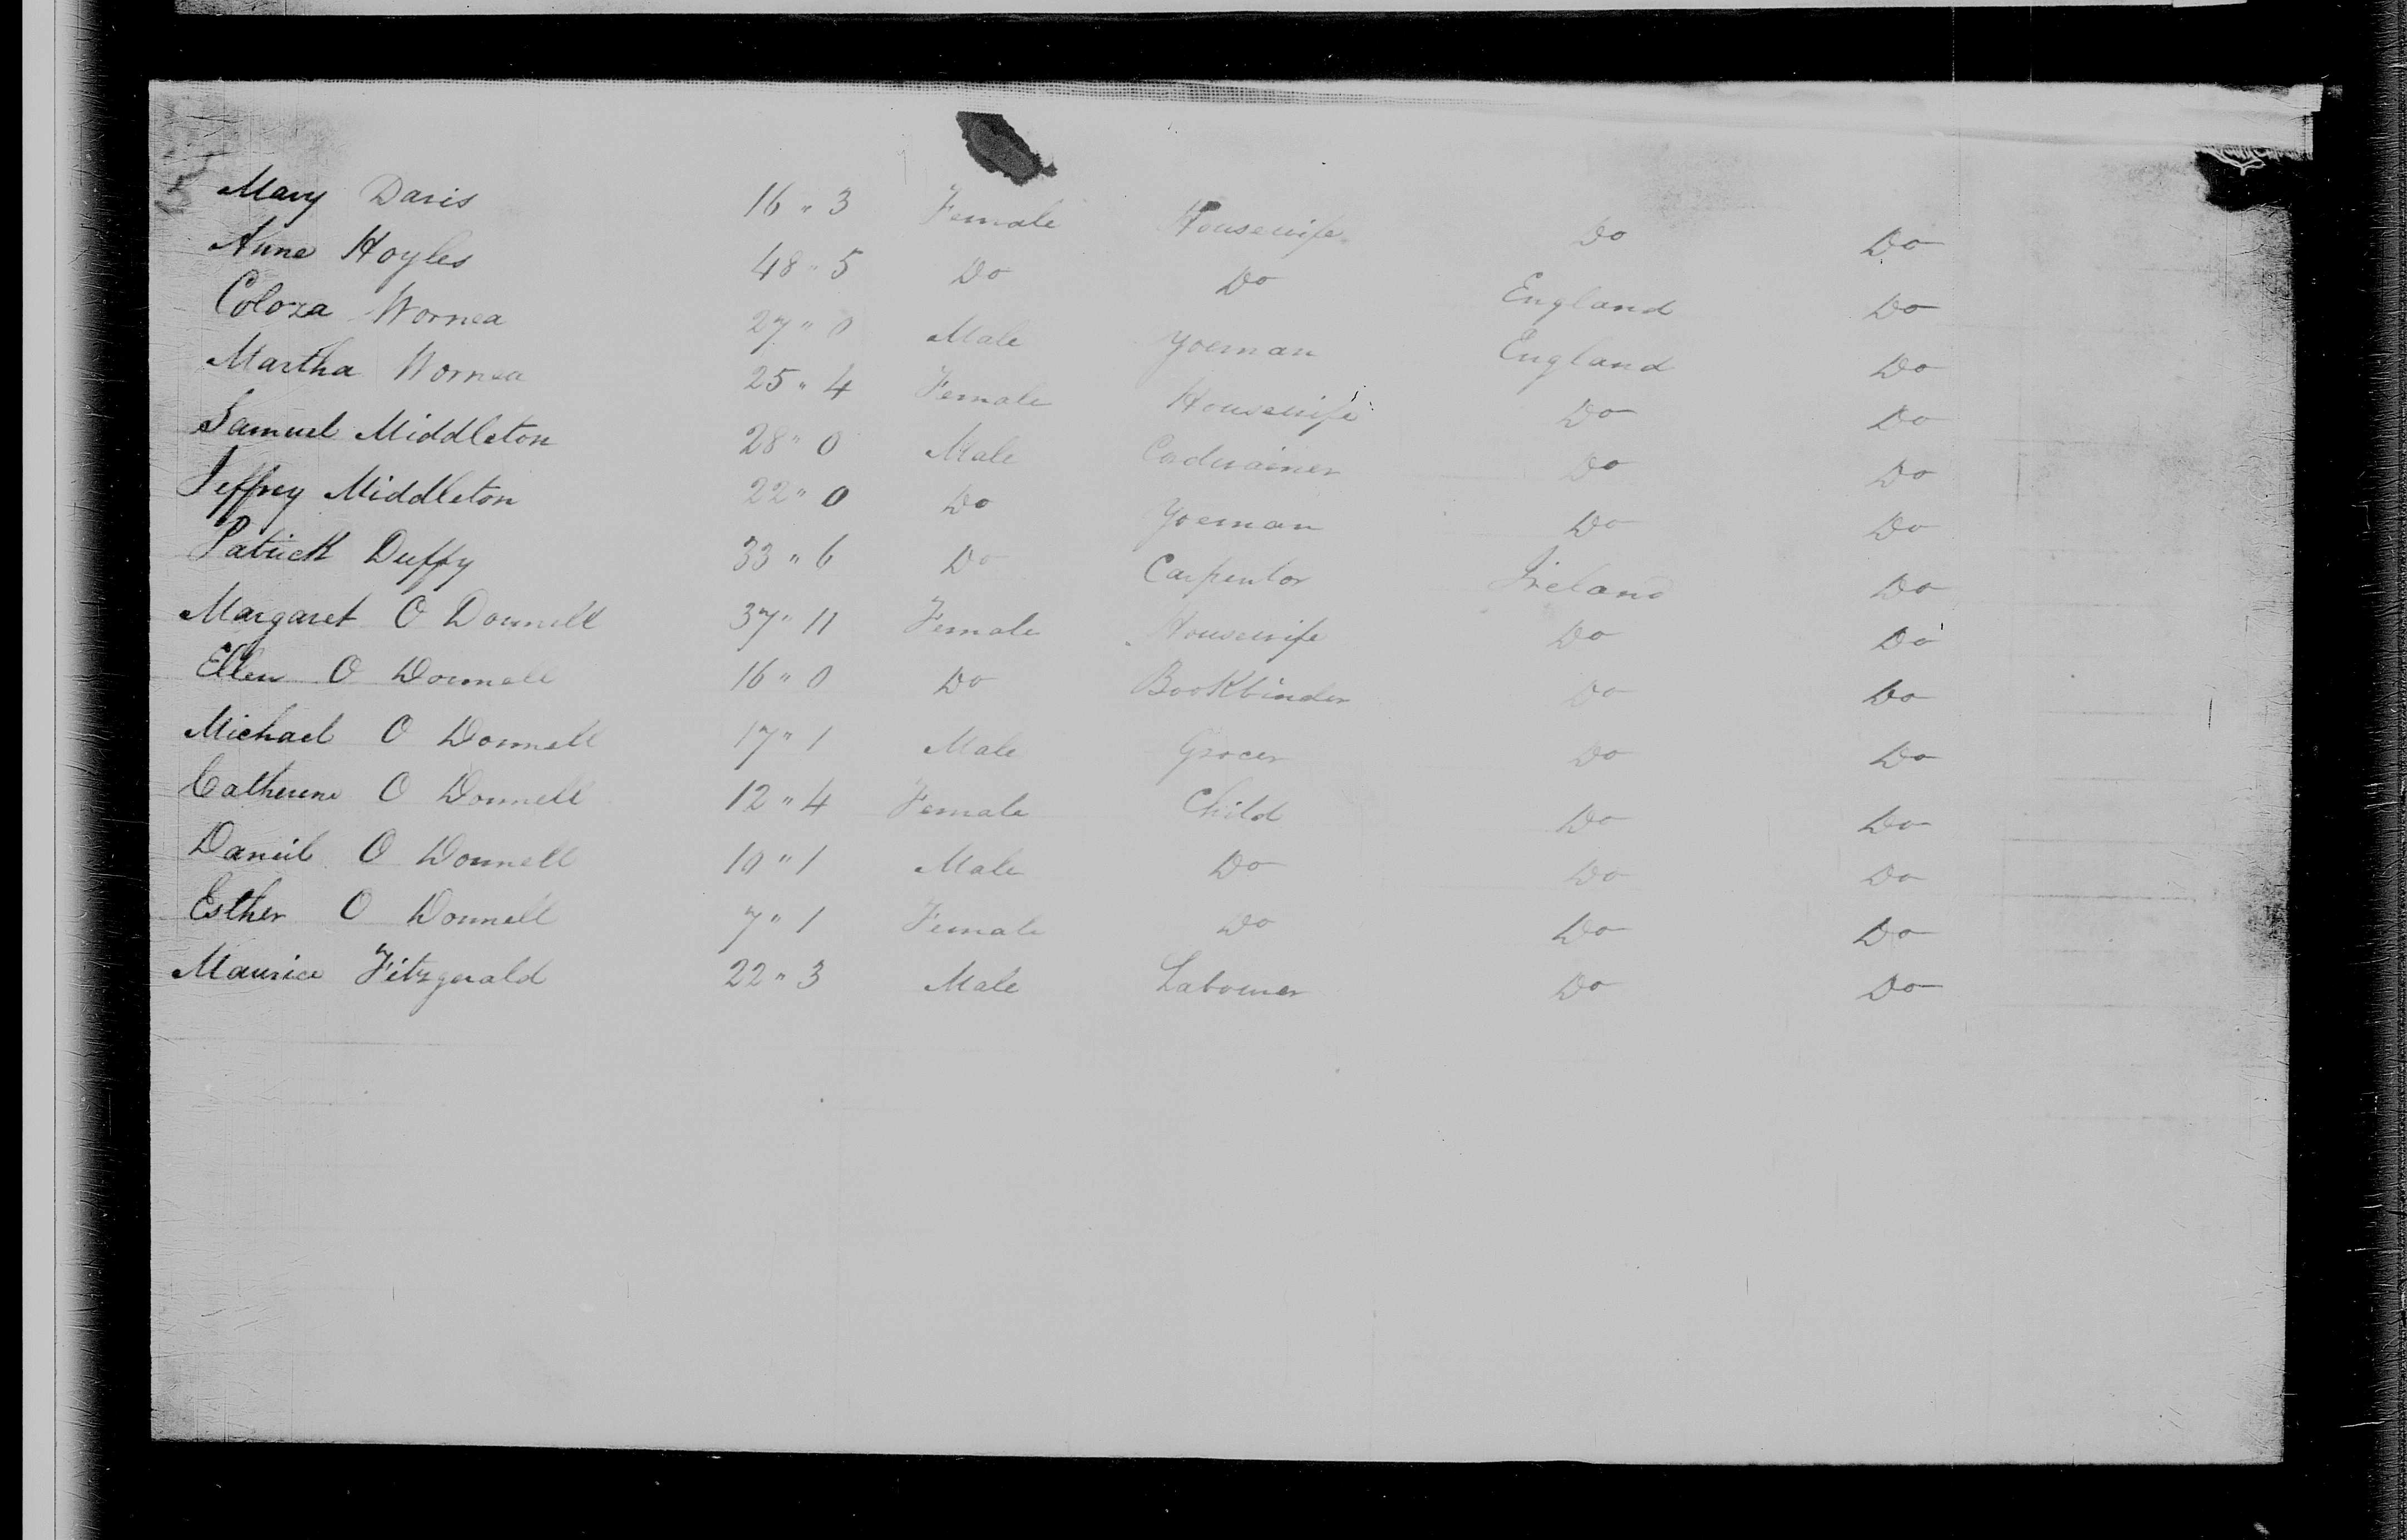 Mary Davis 16 " 3 Female Housewife Do Do
Anne Hoyles 48 " 5 Do Do England Do
Coloza Wornea 27 " 0 Male Yoeman England Do
Martha Wornea 25 " 4 Female Housewife Do Do
Samuel Middleton 28 " 0 Male Cordwainer Do Do
Jeffrey Middleton 22 " 0 Do Yoeman Do Do
Patrick Duffy 33 " 6 Do Carpentor Ireland Do
Margaret O Donnell 37 " 11 Female Housewife Do Do
Ellen O Donnell 16 " 0 Do Bookbinder Do Do
Michael O Donnell 17 " 1 Male Grocer Do Do
Catherine O Donnell 12 " 4 Female Child Do Do
Daniel O Donnell 10 " 1 Male Do Do Do
Esther O Donnell 7 " 1 Female Do Do Do
Maurice Fitzgerald 22 " 3 Male Labourer Do Do